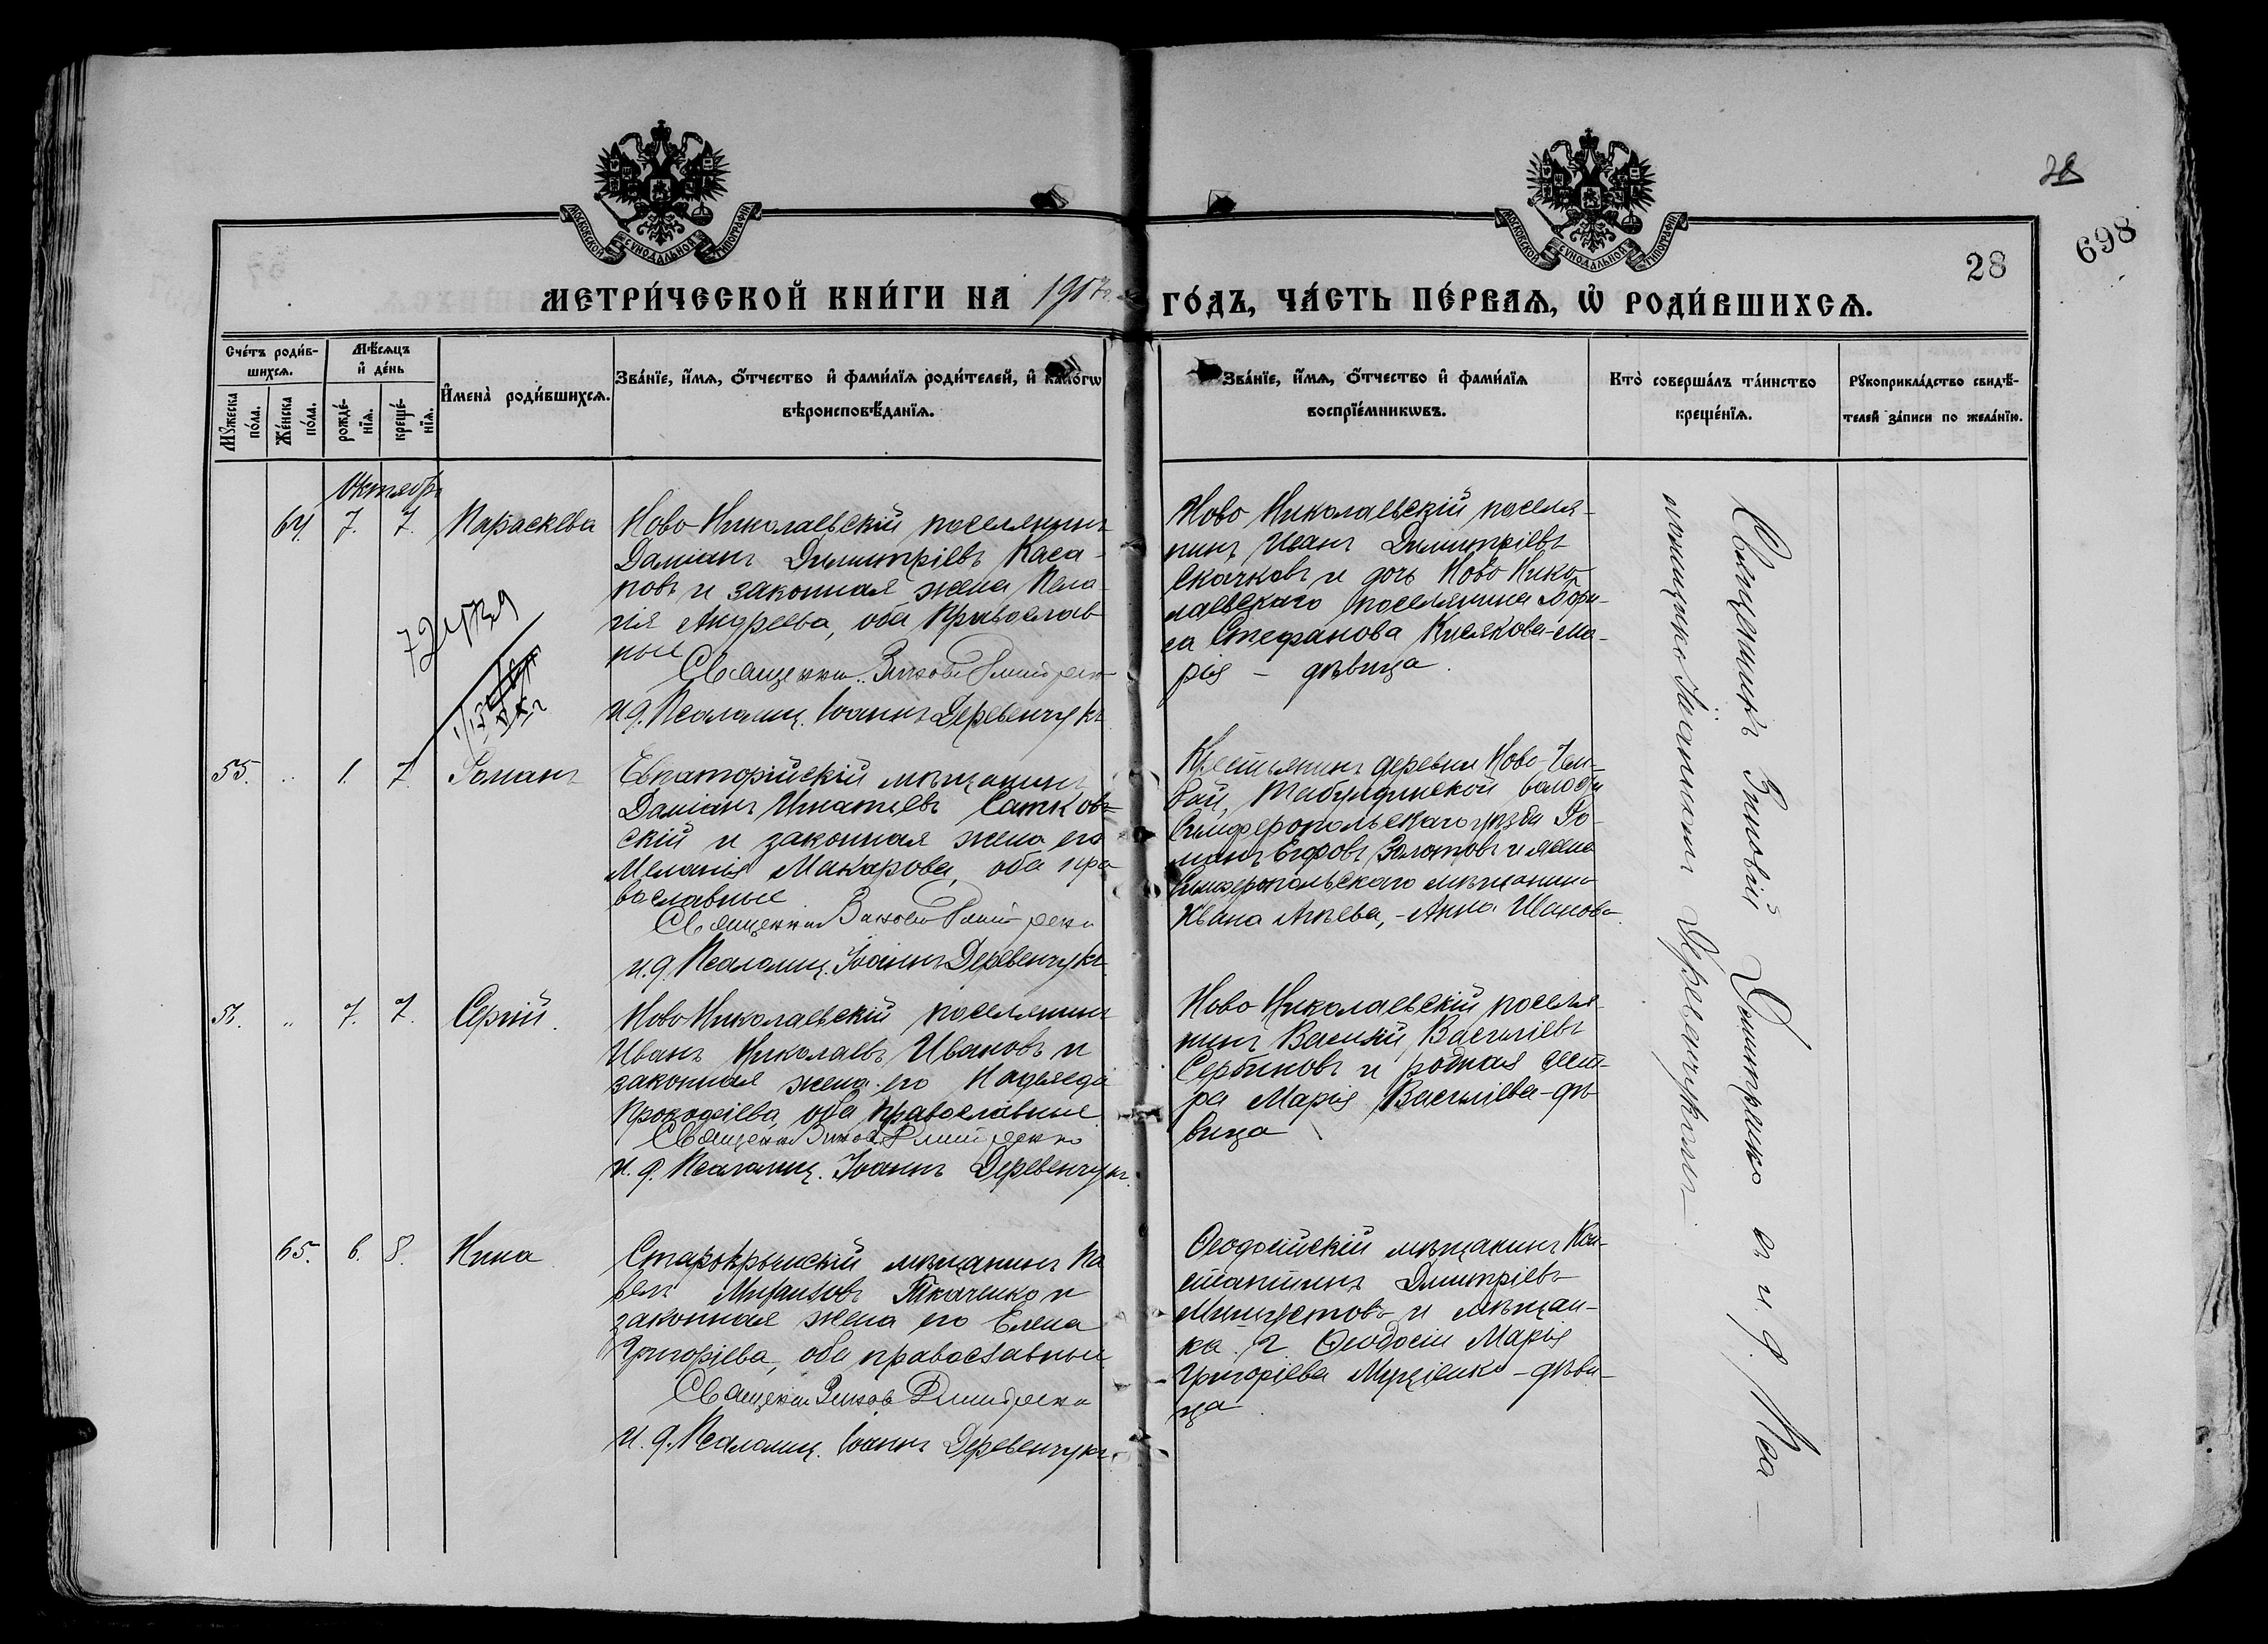 28
698
28
МОСКОВСКОЙ СУНОДАЛЬНОЙ ТИПОГРАФІИ
МОСКОВСКОЙ СУНОДАЛЬНОЙ ТИПОГРАФІИ
МЕТРИ́ЧЕСКОЙ КНИ́ГИ НА 1907 ГО́ДЪ, ЧА́СТЬ ПЕ́РВАѦ, Ѡ҆ РОДИ́ВШИХСѦ.
Сче́тъ роди́в-
шихсѧ.
Мꙋ́жеска по́ла.
Же́нска по́ла.
Мѣ́сѧцъ
и҆ де́нь
рожде́-
нїѧ.
креще́-
нїѧ.
И҆мена̀ роди́вшихсѧ.
Зва́нїе, и҆́мѧ, ѻ҆́тчество и҆ фами́лїѧ роди́телей, и҆ како́гѡ
вѣроисповѣ́данїѧ.
Зва́нїе, и҆́мѧ, ѻ҆́тчество и҆ фами́лїѧ
воспрїе́мникѡвъ.
Кто̀ соверша́лъ та́инство
креще́нїѧ.
Рꙋкоприкла́дство свидѣ́-
телей за́писи по жела́нїю.
Октябрь
64. 7. 7. Параскева
Ново Николаевскій поселянинъ
Даміанъ Димитріевъ Каса-
новъ и законная жена Пела-
гія Андреева, оба православ-
ные
Священник Зиновій Дмитренко
и. д. Псаломщ. Іоаннъ Деревенчукъ
Ново Николаевскій поселя-
нинъ Иванъ Димитріевъ
Скачковъ и дочь Ново Нико-
лаевскаго поселянина Бори-
са Стефанова Кисякова-Ма-
рія - дѣвица.
55. " 1. 7. Романъ
Евпаторійскій мѣщанинъ
Даміанъ Игнатіевъ Сатков-
скій и законная жена его
Меланія Макарова, оба пра-
вославные
Священник Зиновій Дмитренко
и. д. Псаломщ. Іоаннъ Деревенчукъ
Крестьянинъ деревни Ново-
Симферопольскаго уѣзда Ро-
манъ Золотовъ и жена
Симферопольскаго мѣщанина
Ивана - Анна Иванова
56. " 7. 7. Сергій.
Ново Николаевскій поселянинъ
Иванъ Николаевъ Ивановъ и
законная жена его Надежда
Прокофіева, оба православные
Священник Зиновій Дмитренко
и. д. Псаломщ. Іоаннъ Деревенчукъ.
Ново Николаевскій поселя-
нинъ Василій Васильевъ
Сербиновъ и родная сест-
ра Марія Васильева-дѣ-
вица
65. 6. 8. Нина
Старокрымскій мѣщанинъ Па
велъ Ткаченко и
законная жена его Елена
Григоріева, оба православные
Священник Зиновій Дмитренко
и. д. Псаломщ. Іоаннъ Деревенчукъ.
Ѳеодосійскій мѣщанинъ Кон-
стантинъ Дмитріевъ
и мѣщан-
ка г. Ѳеодосіи Марія
Григоріева - дѣви-
ца.
Священникъ Зиновій Дмитренко съ и. д. Пса-
ломщика Іоанномъ Деревенчукомъ